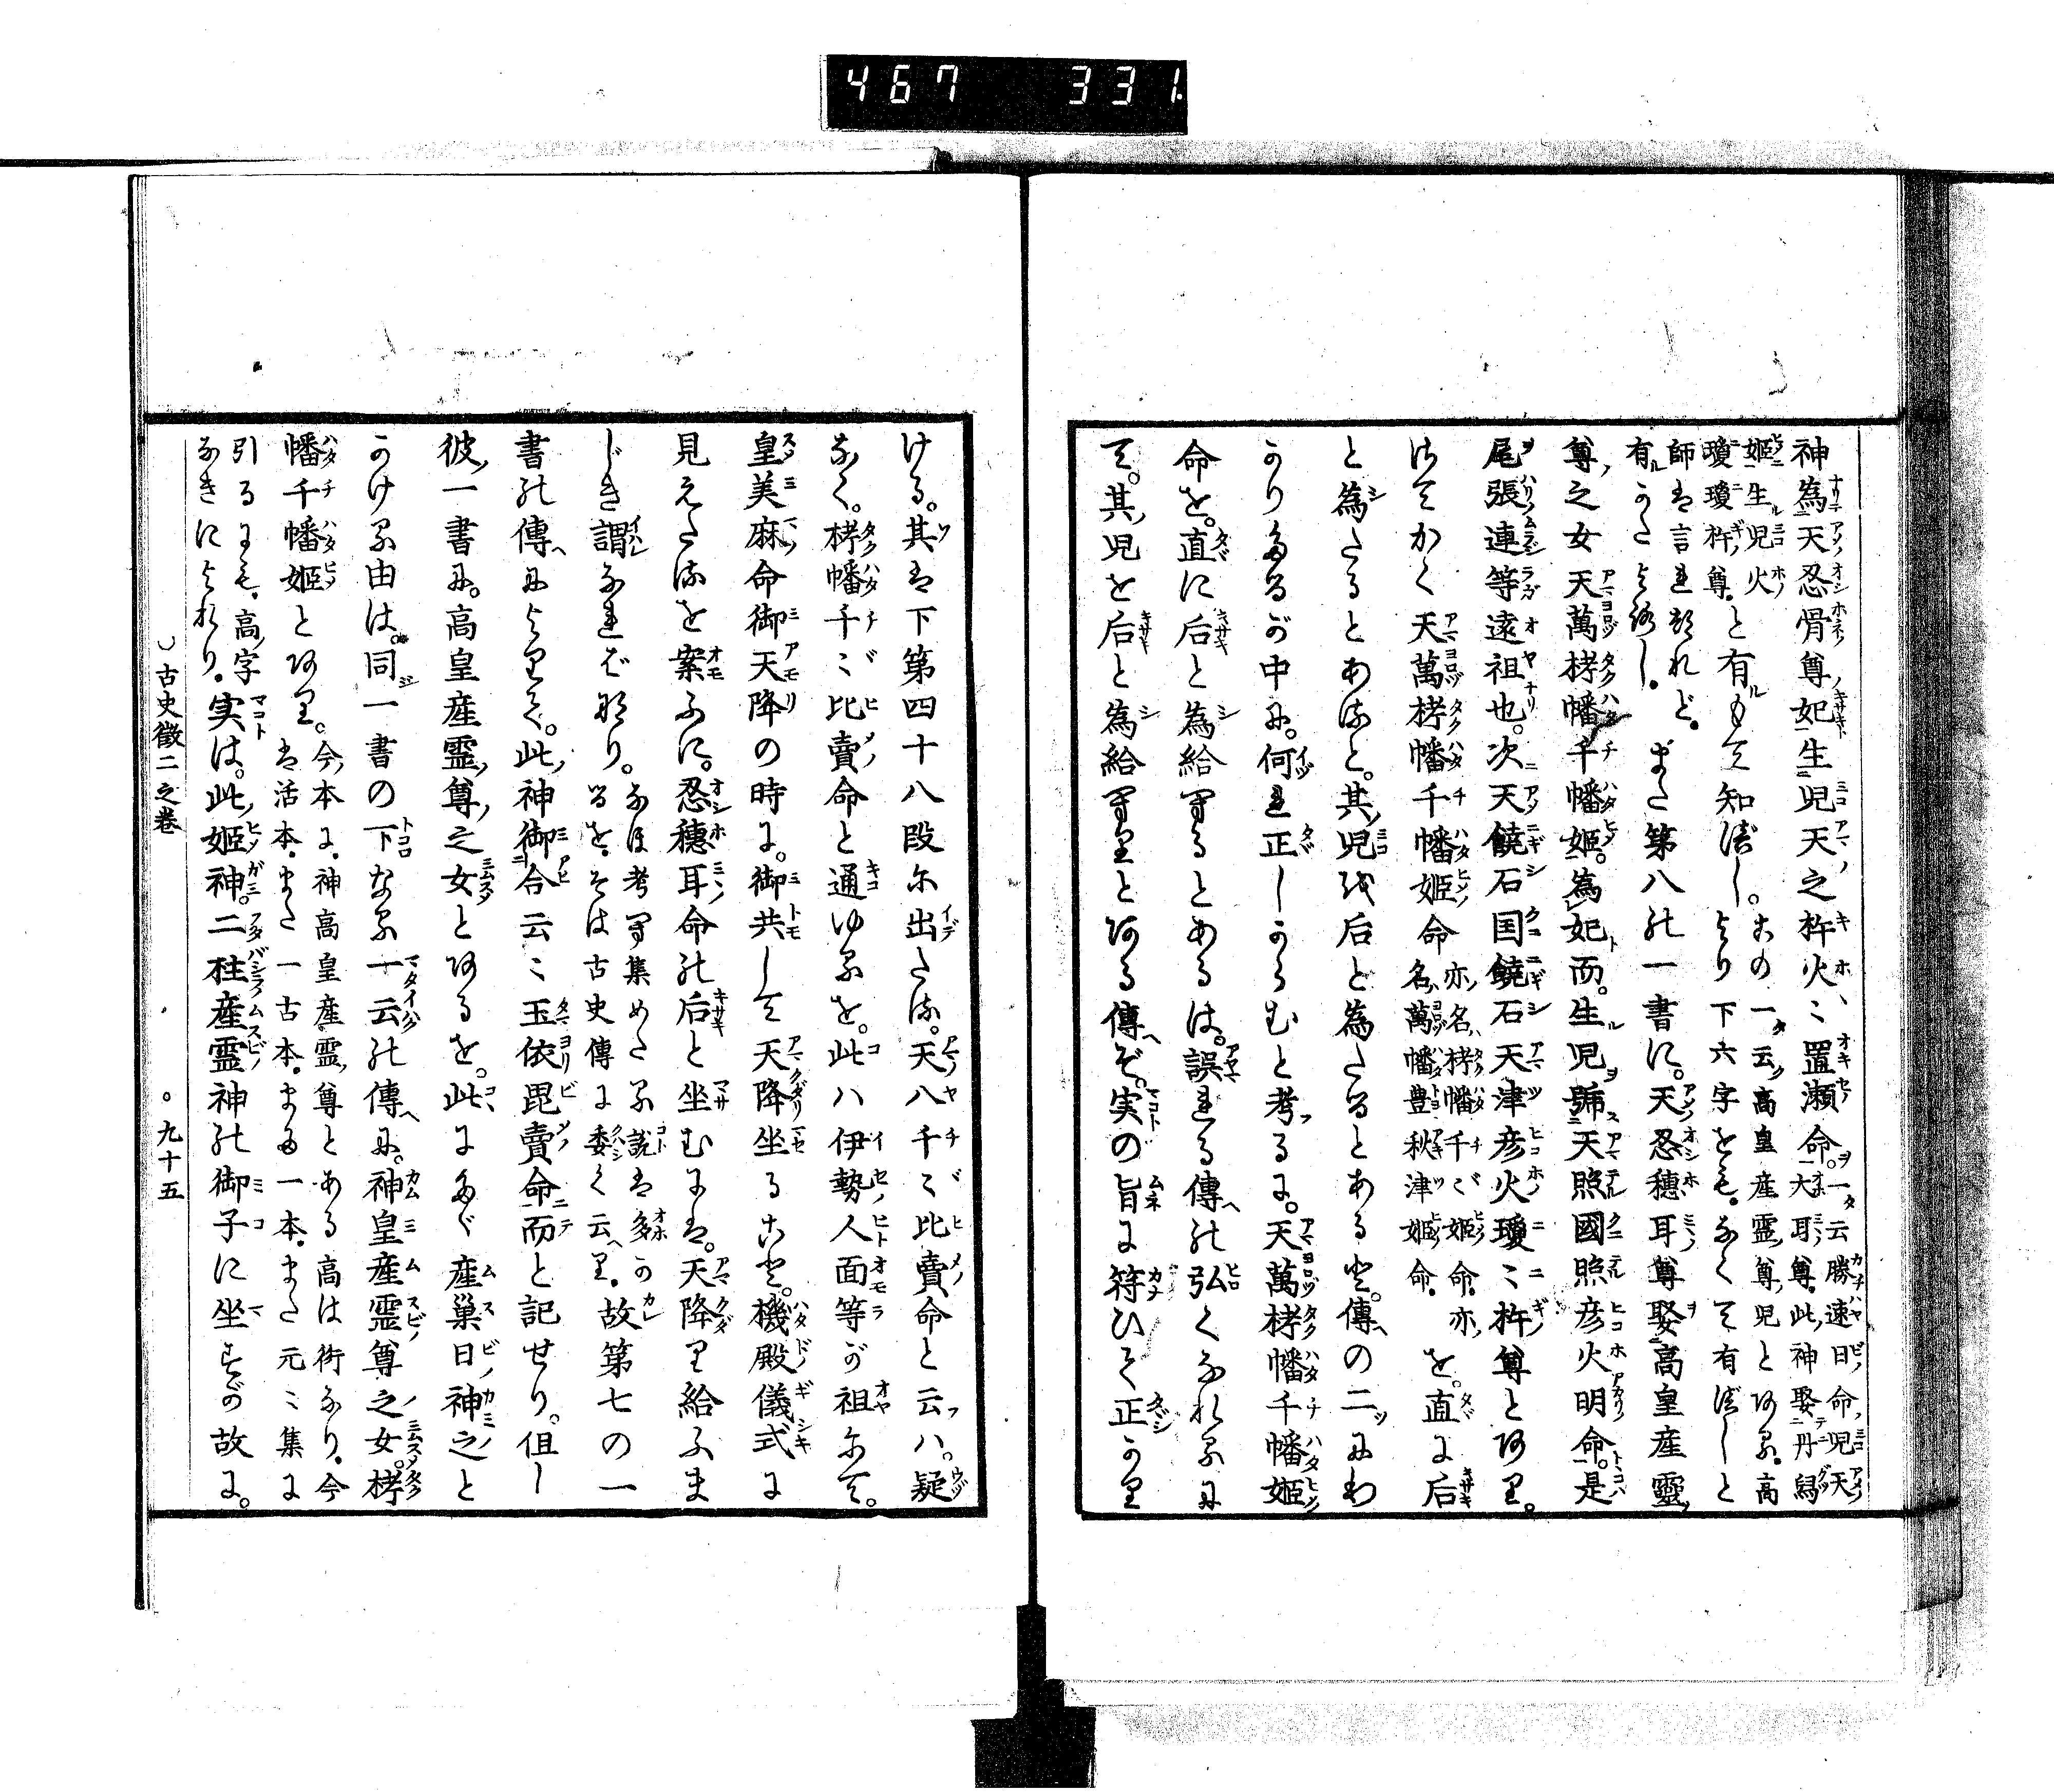 467 331
神為天忍骨尊妃生児天之杵火々置瀬命。一云勝速日命児天
大耳尊。此神娶丹舄
姫生児火
瓊瓊杵尊。と有もて知べし。
この一云高皇産霊尊児とある。高
より下六字をも。なくて有べしと
師は言れたれど。
有かたよろし。
また第八の一書に。天忍穂耳尊娶高皇産霊
尊之女天萬栲幡千幡姫。為妃而。生児號天照國照彦火明命。是
尾張連等遠祖也。次天饒石国饒石天津彦火瓊々杵尊とあり。
さてかく天萬栲幡千幡姫命
亦名栲幡千々姫命。亦
名萬幡豊秋津姫命。
を。直に后
と為たるとあると。其児を后と為たるとある。傳の二にわ
かりたるが中に。何れ正しからむと考るに。天萬栲幡千幡姫
命を。直に后と為給へるとあるは。誤れる傳の弘くなれるに
て。其児を后と為給へりとある傳ぞ。実の旨に符ひて正かり
ける。其は下第四十八段に出たる。天八千々比賣命と云ハ。疑
なく。栲幡千々比賣命と通ゆるを。此ハ伊勢人面等が祖にて。
皇美麻命御天降の時に。御共して天降坐ること。機殿儀式に
見えたるを案ふに。忍穂耳命の后と坐むには。天降り給ふま
じき謂なれば也。
なほ考へ集めたる説は多か
るを。そは古史傳に委く云へり。
故第七の一
書の傳によりて。此神御合云々玉依毘賣命而と記せり。但し
彼一書に。高皇産霊尊之女とあるを。此にたゞ産巣日神之と
かける由は。同一書の下なる一云の傳に。神皇産霊尊之女。栲
幡千幡姫とあり。
今本に。神高皇産霊尊とある高は衍なり。今
は活本。また一古本。また一本。また元々集に
引るにも。高字
なきによれり。
実は。此姫神。二柱産霊神の御子に坐すが故に。
古史徴二之巻
九十五